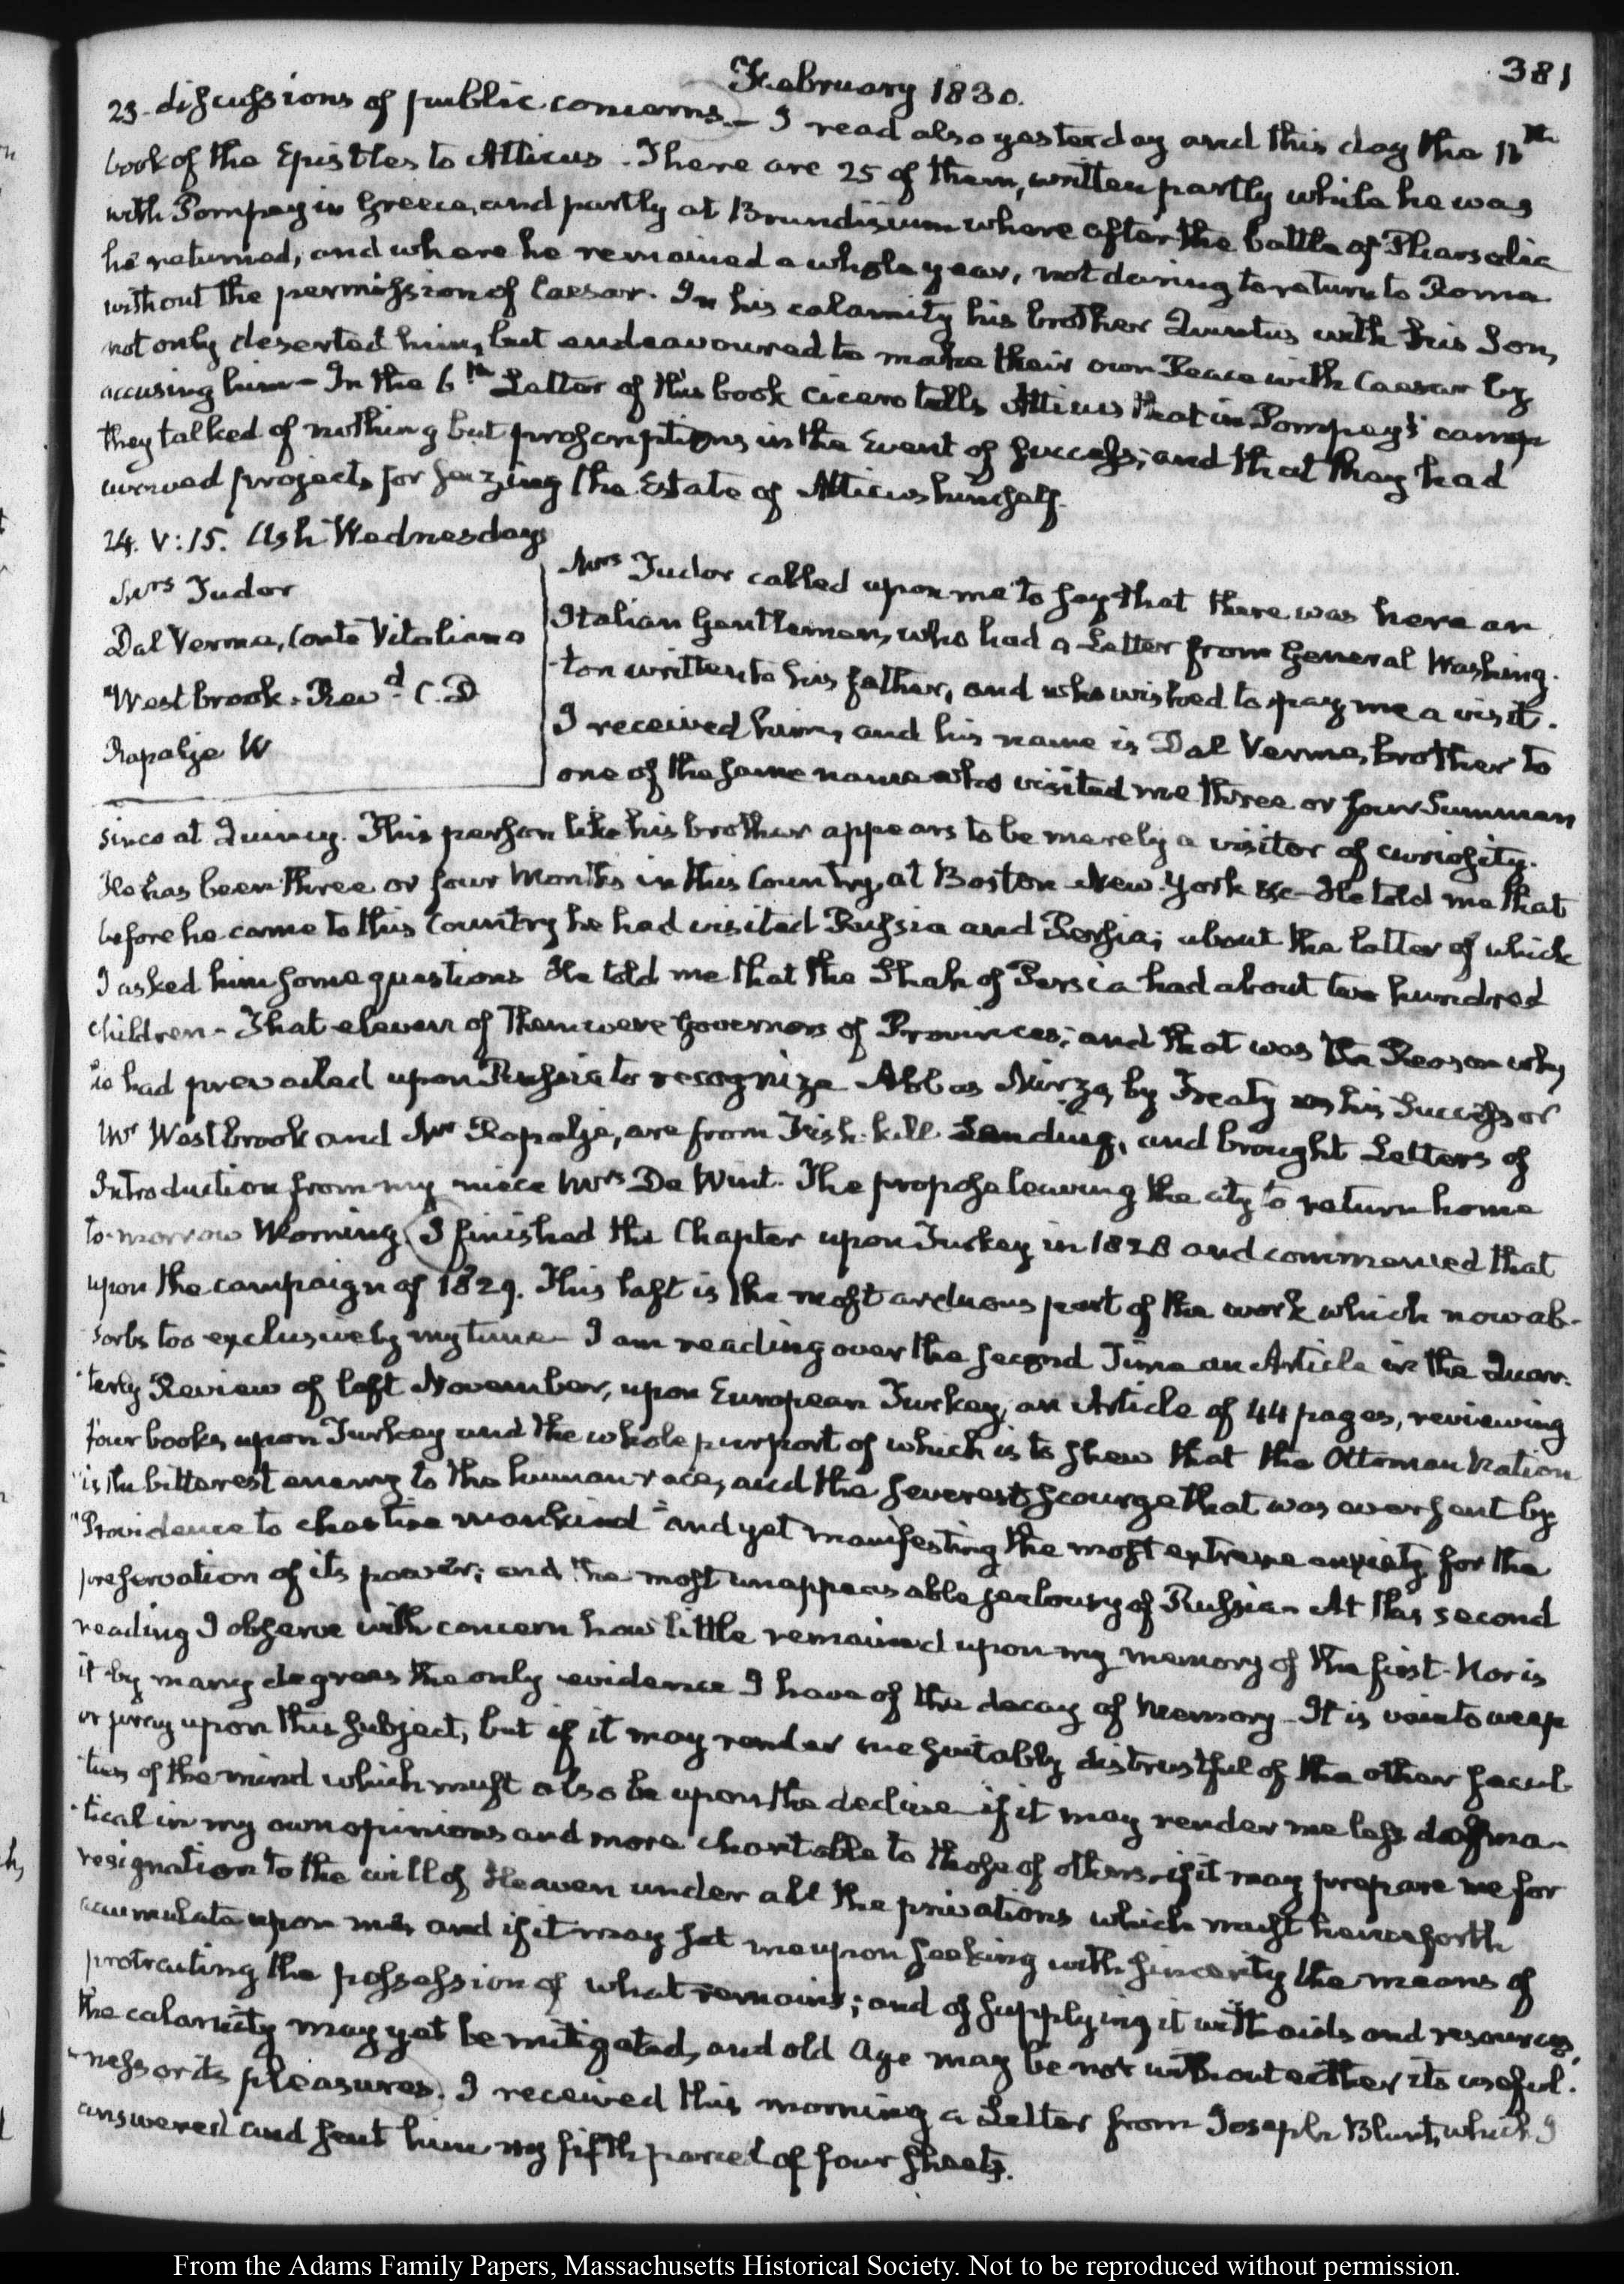 381
February 1830.
23. discussions of public concerns.— I read also yesterday and this day the 11th
book of the Epistles to Atticus. There are 25 of them, written partly while he was
with Pompey in Greece, and partly at Brundisium where after the battle of Pharsalia
he returned, and where he remained a whole year, not daring to return to Rome
without the permission of Caesar. In his calamity his brother Quintus with his Son,
not only deserted him, but endeavoured to make their own Peace with Caesar by
accusing him— In the 6th Letter of this book Cicero tells Atticus that in Pompey's camp
they talked of nothing but proscriptions in the Event of success; and that they had
avowed projects for seizing the Estate of Atticus himself.
24. V:15. Ash Wednesday
Mrs Tudor
Dal Verme, Conte Vitaliano
Westbrook. Revd. C. D
Rapalje W
Mrs Tudor called upon me to say that there was here an
Italian Gentleman, who had a Letter from General Washing-
-ton written to his father, and who wished to pay me a visit.
I received him, and his name is Dal Verme, brother to
one of the same name who visited me three or four Summers
since at Quincy. This person like his brother appears to be merely a visitor of curiosity.
He has been three or four Months in this Country, at Boston New-York &c— He told me that
before he came to this Country he had visited Russia and Persia; about the latter of which
I asked him some questions He told me that the Shah of Persia had about two hundred
children— That eleven of them were Governors of Provinces; and that was the Reason why
he had prevailed upon Russia to recognize Abbas Mirza, by Treaty as his Successor
Mr Westbrook and Mr Rapalje, are from Fish-kill Landing, and brought Letters of
Introduction from my niece Mrs De Wint. The propose leaving the city to return home
to-morrow Morning. I finished the Chapter upon Turkey in 1828 and commenced that
upon the campaign of 1829. This last is the most arduous part of the work which now ab-
sorbs too exclusively my time— I am reading over the second Time an Article in the Quar-
-terly Review of last November, upon European Turkey, an Article of 44 pages, reviewing
four books upon Turkey and the whole purport of which is to shew that the Ottoman Nation
"is the bitterest enemy to the human race, and the severest scourge that was ever sent by
"Providence to chastise mankind" and yet manifesting the most extreme anxiety for the
preservation of its power; and the most unappeasable jealousy of Russia— At this second
reading I observe with concern how little remained upon my memory of the first. Nor is
it by many degrees the only evidence I have of the decay of Memory— It is vain to weep
or pray upon this subject, but if it may render me suitably distrustful of the other facul-
-ties of the mind which must also be upon the decline if it may render me less dogma-
-tical in my own opinions and more charitable to those of others, if it may prepare me for
resignation to the will of Heaven under all the privations which must henceforth
accumulate upon me, and if it may set me upon seeking with sincerity the means of
protracting the possession of what remains; and of supplying it with aids and resources,
the calamity may yet be mitigated, and old Age may be not without either its useful-
-ness or its pleasures. I received this morning a Letter from Joseph Blunt, which I
answered and sent him my fifth parcel of four sheets.
From the Adams Family Papers, Massachusetts Historical Society. Not to be reproduced without permission.